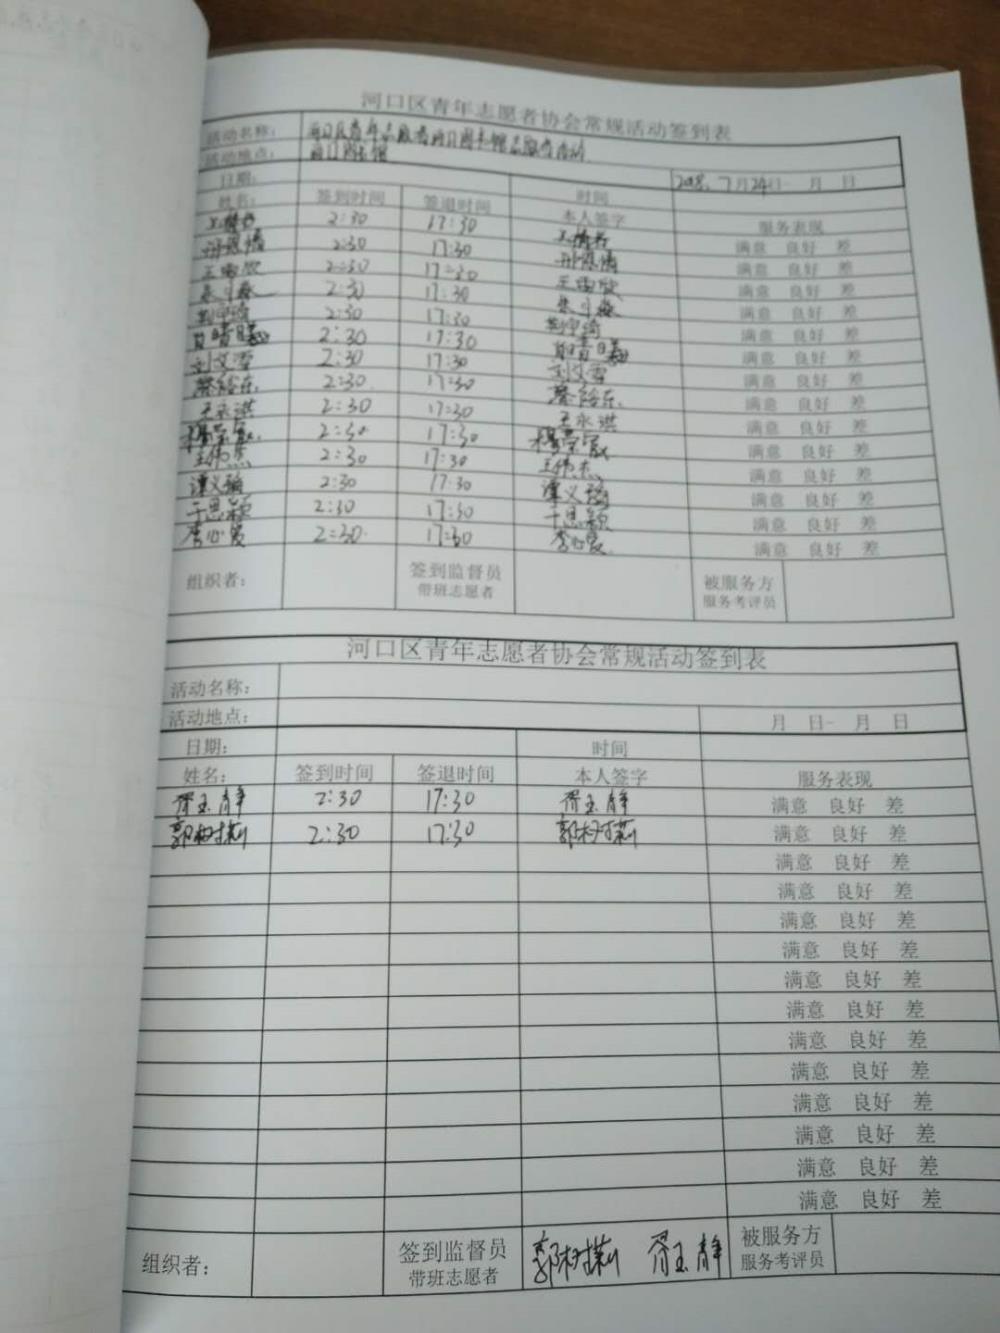 河口区青年志愿者协会常规活动签到表
活动名称： 河口区青年志愿者河口图书馆志愿者活动
活动地点： 河口图书馆
日期： 时间 2018.7月24日- 月 日
姓名： 签到时间 签退时间 本人签字 服务表现
2:30 17:30 满意 良好 差
2:30 17:30 满意 良好 差
2:30 17:30 满意 良好 差
2:30 17:30 满意 良好 差
2:30 17:30 满意 良好 差
2:30 17:30 满意 良好 差
刘文雪 2:30 17:30 刘文雪 满意 良好 差
2:30 17:30 满意 良好 差
王永淇 2:30 17:30 王永淇 满意 良好 差
2:30 17:30 满意 良好 差
王伟杰 2:30 17:30 王伟杰 满意 良好 差
谭义瑞 2:30 17:30 谭义瑞 满意 良好 差
于思颖 2:30 17:30 于思颖 满意 良好 差
李心爱 2:30 17:30 李心爱 满意 良好 差
组织者： 签到监督员 被服务方
带班志愿者 服务考评员
河口区青年志愿者协会常规活动签到表
活动名称：
活动地点： 月 日- 月 日
日期： 时间
姓名： 签到时间 签退时间 本人签字 服务表现
胥玉静 2:30 17:30 胥玉静 满意 良好 差
郭树莉 2:30 17:30 郭树莉 满意 良好 差
满意 良好 差
满意 良好 差
满意 良好 差
满意 良好 差
满意 良好 差
满意 良好 差
满意 良好 差
满意 良好 差
满意 良好 差
满意 良好 差
满意 良好 差
满意 良好 差
组织者： 签到监督员 郭树莉 胥玉静 被服务方
带班志愿者 服务考评员